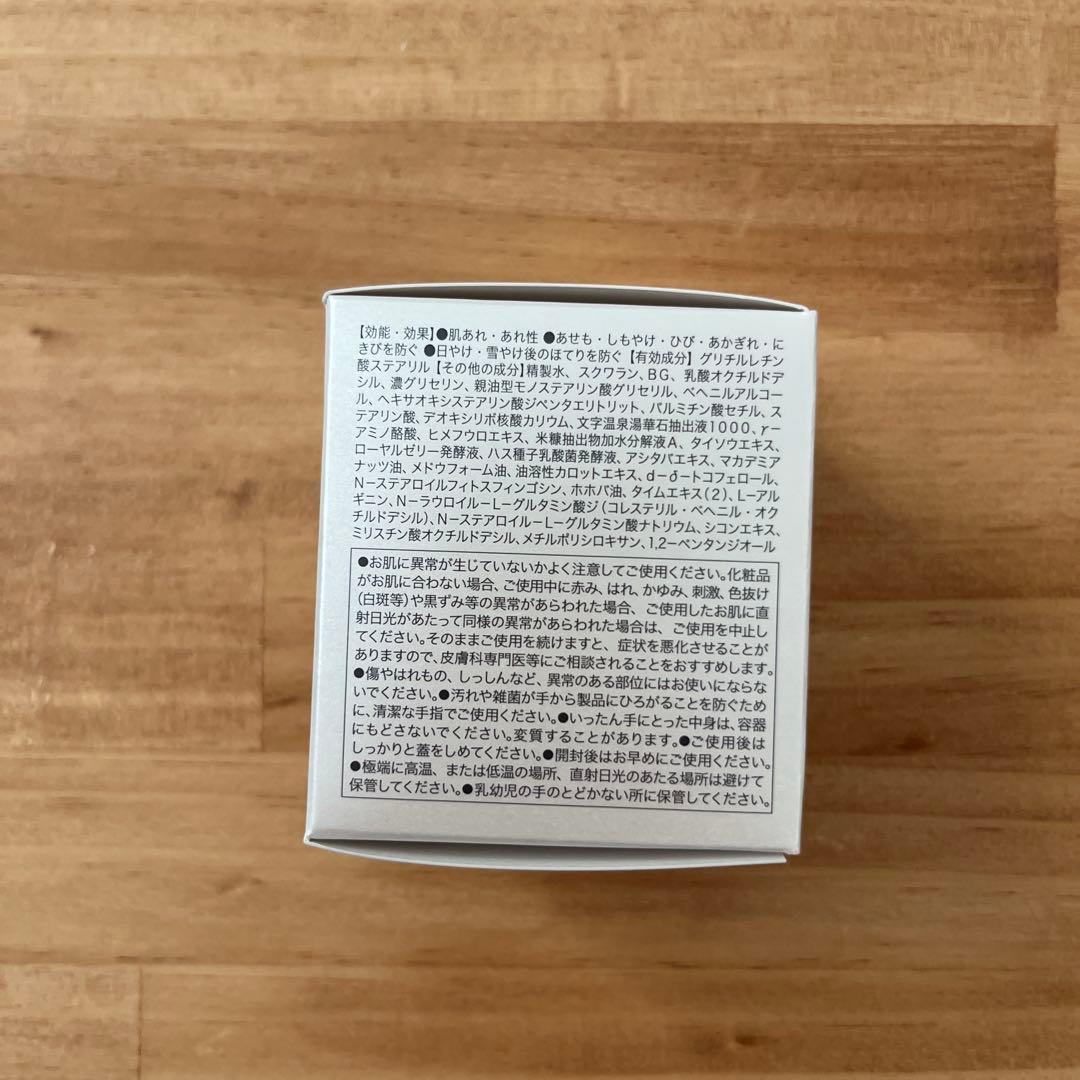 【効能・効果】●肌あれ・あれ性 ●あせも・しもやけ・ひび・あかぎれ・に
きびを防ぐ ●日やけ・雪やけ後のほてりを防ぐ【有効成分】グリチルレチン
酸ステアリル【その他の成分】精製水、スクワラン、BG、乳酸オクチルドデ
シル、濃グリセリン、親油型モノステアリン酸グリセリル、ベヘニルアルコー
ル、ヘキサオキシステアリン酸ジペンタエリトリット、パルミチン酸セチル、ス
テアリン酸、デオキシリボ核酸カリウム、文字温泉湯華石抽出液1000、γ-
アミノ酪酸、ヒメフウロエキス、米糠抽出物加水分解液A、タイソウエキス、
ローヤルゼリー発酵液、ハス種子乳酸菌発酵液、アシタバエキス、マカデミア
ナッツ油、メドウフォーム油、油溶性カロットエキス、d-δ-トコフェロール、
N-ステアロイルフィトスフィンゴシン、ホホバ油、タイムエキス(2)、L-アル
ギニン、N-ラウロイル-L-グルタミン酸ジ(コレステリル・ベヘニル・オク
チルドデシル)、N-ステアロイル-L-グルタミン酸ナトリウム、シコンエキス、
ミリスチン酸オクチルドデシル、メチルポリシロキサン、1,2-ペンタンジオール
●お肌に異常が生じていないかよく注意してご使用ください。化粧品
がお肌に合わない場合、ご使用中に赤み、はれ、かゆみ、刺激、色抜け
(白斑等)や黒ずみ等の異常があらわれた場合、ご使用したお肌に直
射日光があたって同様の異常があらわれた場合は、ご使用を中止し
てください。そのままご使用を続けますと、症状を悪化させることが
ありますので、皮膚科専門医等にご相談されることをおすすめします。
●傷やはれもの、しっしんなど、異常のある部位にはお使いにならな
いでください。●汚れや雑菌が手から製品にひろがることを防ぐため
に、清潔な手指でご使用ください。●いったん手にとった中身は、容器
にもどさないでください。変質することがあります。●ご使用後は
しっかりと蓋をしめてください。●開封後はお早めにご使用ください。
●極端に高温、または低温の場所、直射日光のあたる場所は避けて
保管してください。●乳幼児の手のとどかない所に保管してください。